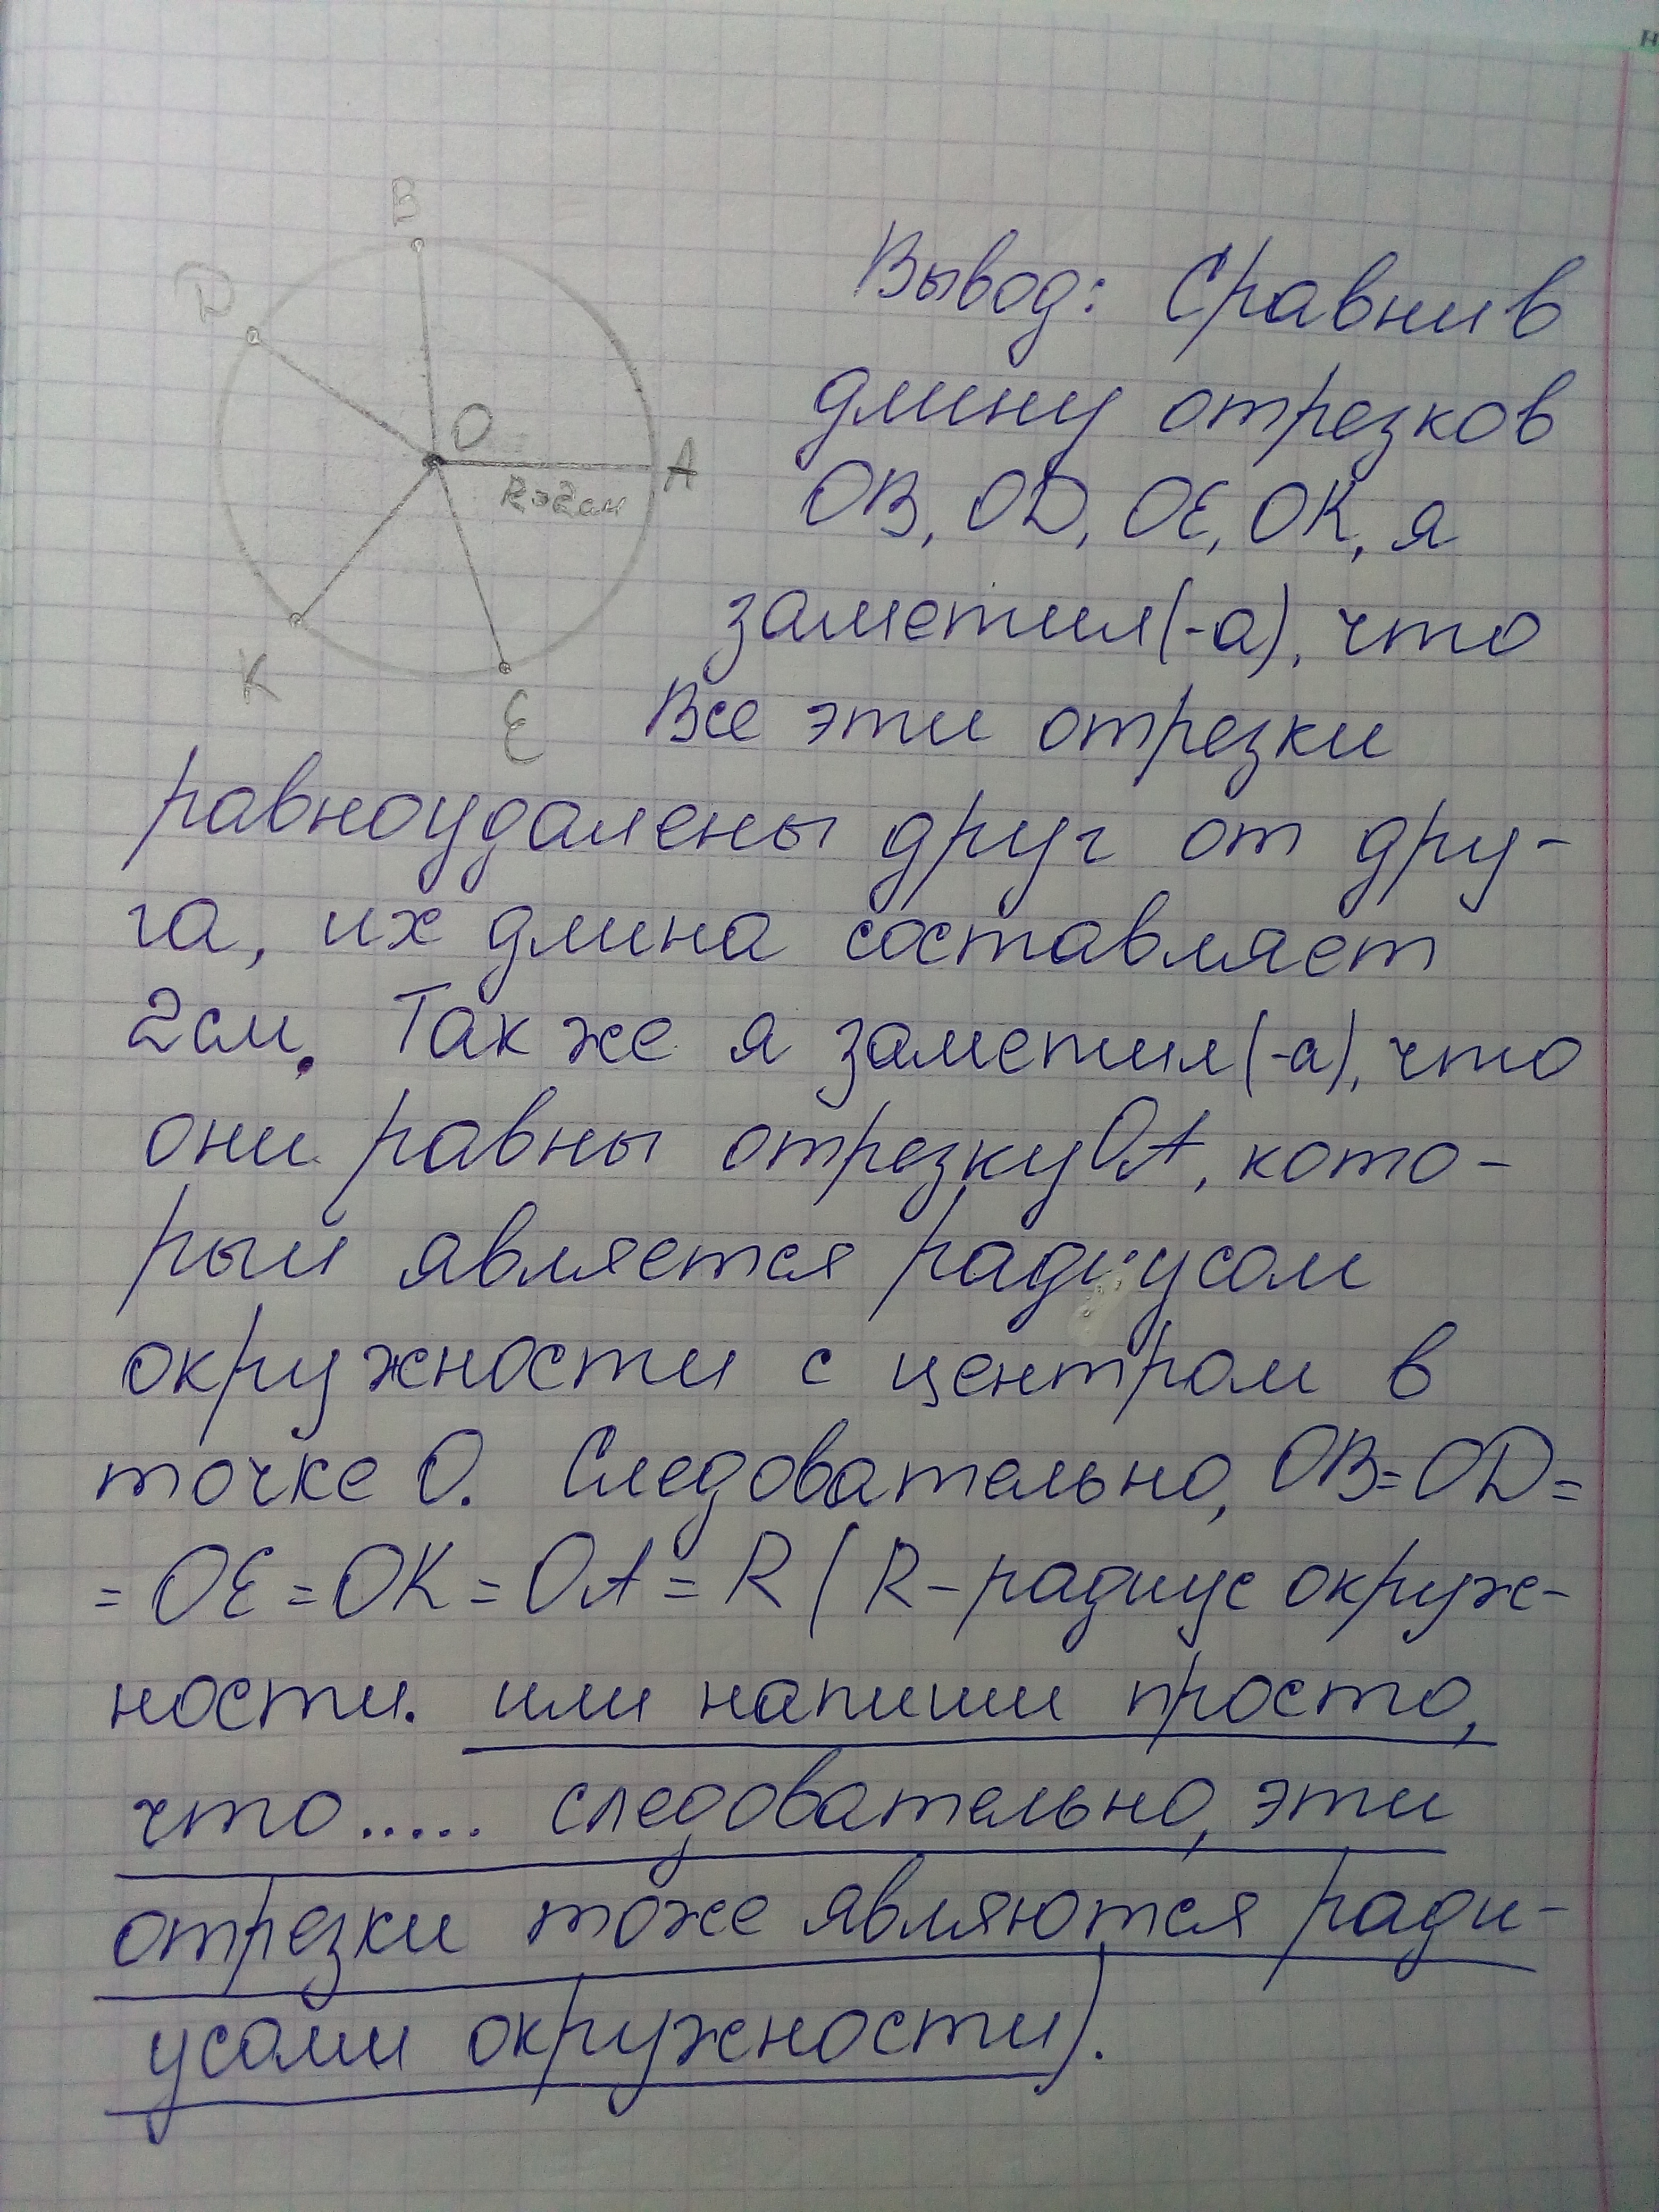 В
D
О
A
R=2см
К
E
Вывод: Сравнив
длину отрезков
OB, OD, OE, OK, я
заметил(-а), что
Все эти отрезки
равноудалены друг от дру-
га, их длина составляет
2см. Так же я заметил(-а), что
они равны отрезку OA, кото-
рый является радиусом
окружности с центром в
точке О. Следовательно, OB=OD=
=OE=OK=OA=R (R-радиус окруж-
ности. или напиши просто,
что..... следовательно, эти
отрезки тоже являются ради-
усами окружности).